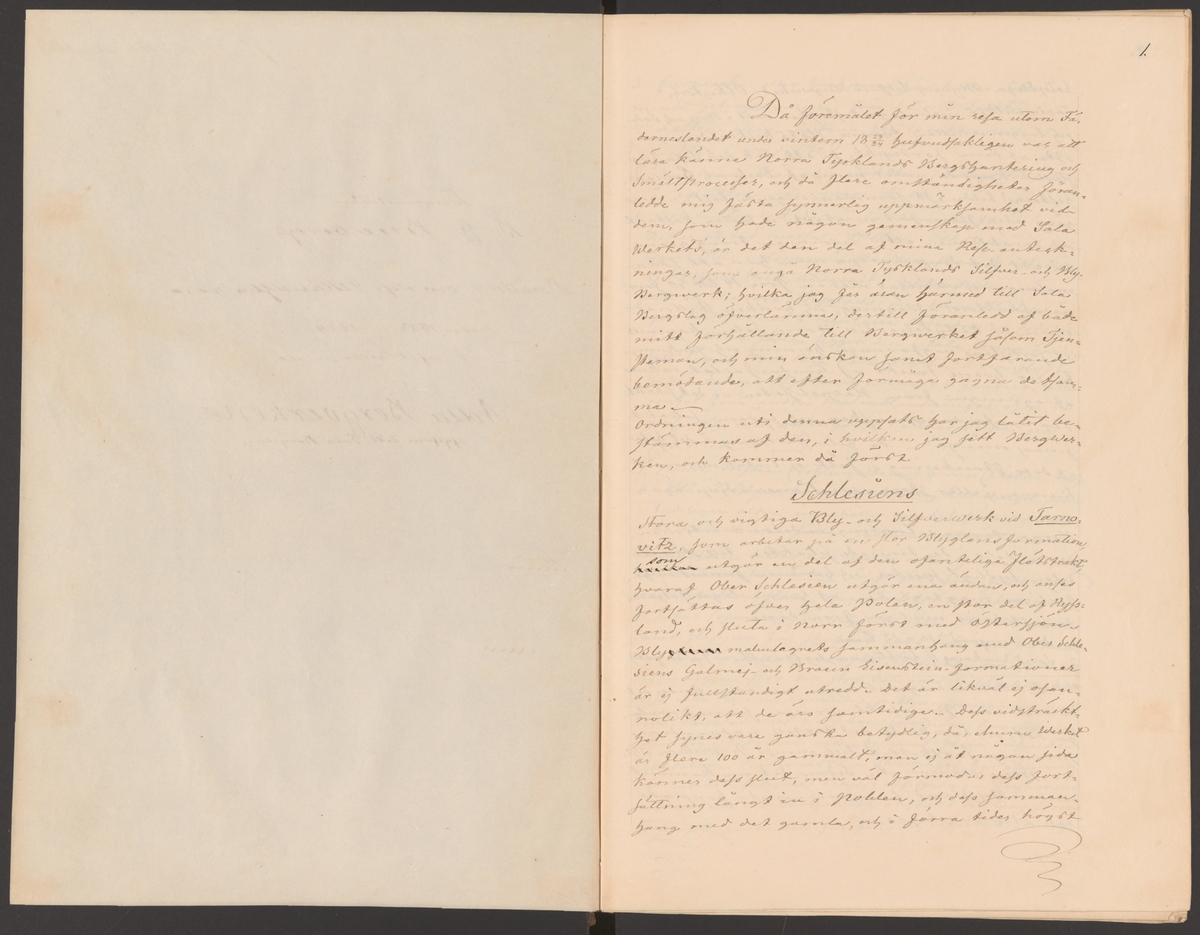 1.
Då föremålet för min resa utom Fä-
derneslandet under vintern 18 33/34 hufvudsakligen var att
lära känna Norra Tysklands Bergshantering och
Smältprocesser, och då flere omständigheter föran-
ledde mig fästa synnerlig uppmärksamhet vid
dem, som hade någon gemenskap med Sala
Werkets, är det den del af mina Rese anteck-
ningar, som angå Norra Tysklands Silfver- och Bly-
Bergwerk; hvilka jag får äran härmed till Sala
Bergslag öfverlämna, dertill föranledd af både
mitt förhållande till Bergwerket såsom Tjen-
steman, och min önskan samt fortfarande
bemödande, att efter förmåga gagna detsam-
ma.
Ordningen uti denna uppsats har jag låtit be-
stämmas af den, i hvilken jag sett Bergwer-
ken, och kommer då först
Schlesiens
Stora och vigtiga Bly- och Silfverwerk vid Tarno-
vitz, som arbetar på en stor Blyglans formation,
som utgör en del af den ofantliga Flötstrakt,
hvaraf Ober Schlesien utgör ena ändan, och anses
fortsättas öfver hela Polen, en stor del af Ryss-
land, och sluta i Norr först med Östersjön.
Bly malmlagrets sammanhang med Ober Schle-
siens Galmej- och Braun Eisenstein-formationer
är ej fullständigt utredd. Det är likväl ej osan-
nolikt, att de äro samtidige. Dess vidsträckt-
het synes vara ganska betydlig, då, ehuru Werket
är flera 100 år gammalt, man ej åt någon sida
känner dess slut, men väl förmodar dess fort-
sättning långt in i Pohlen, och dess samman-
hang med det gamla, och i förra tider högst